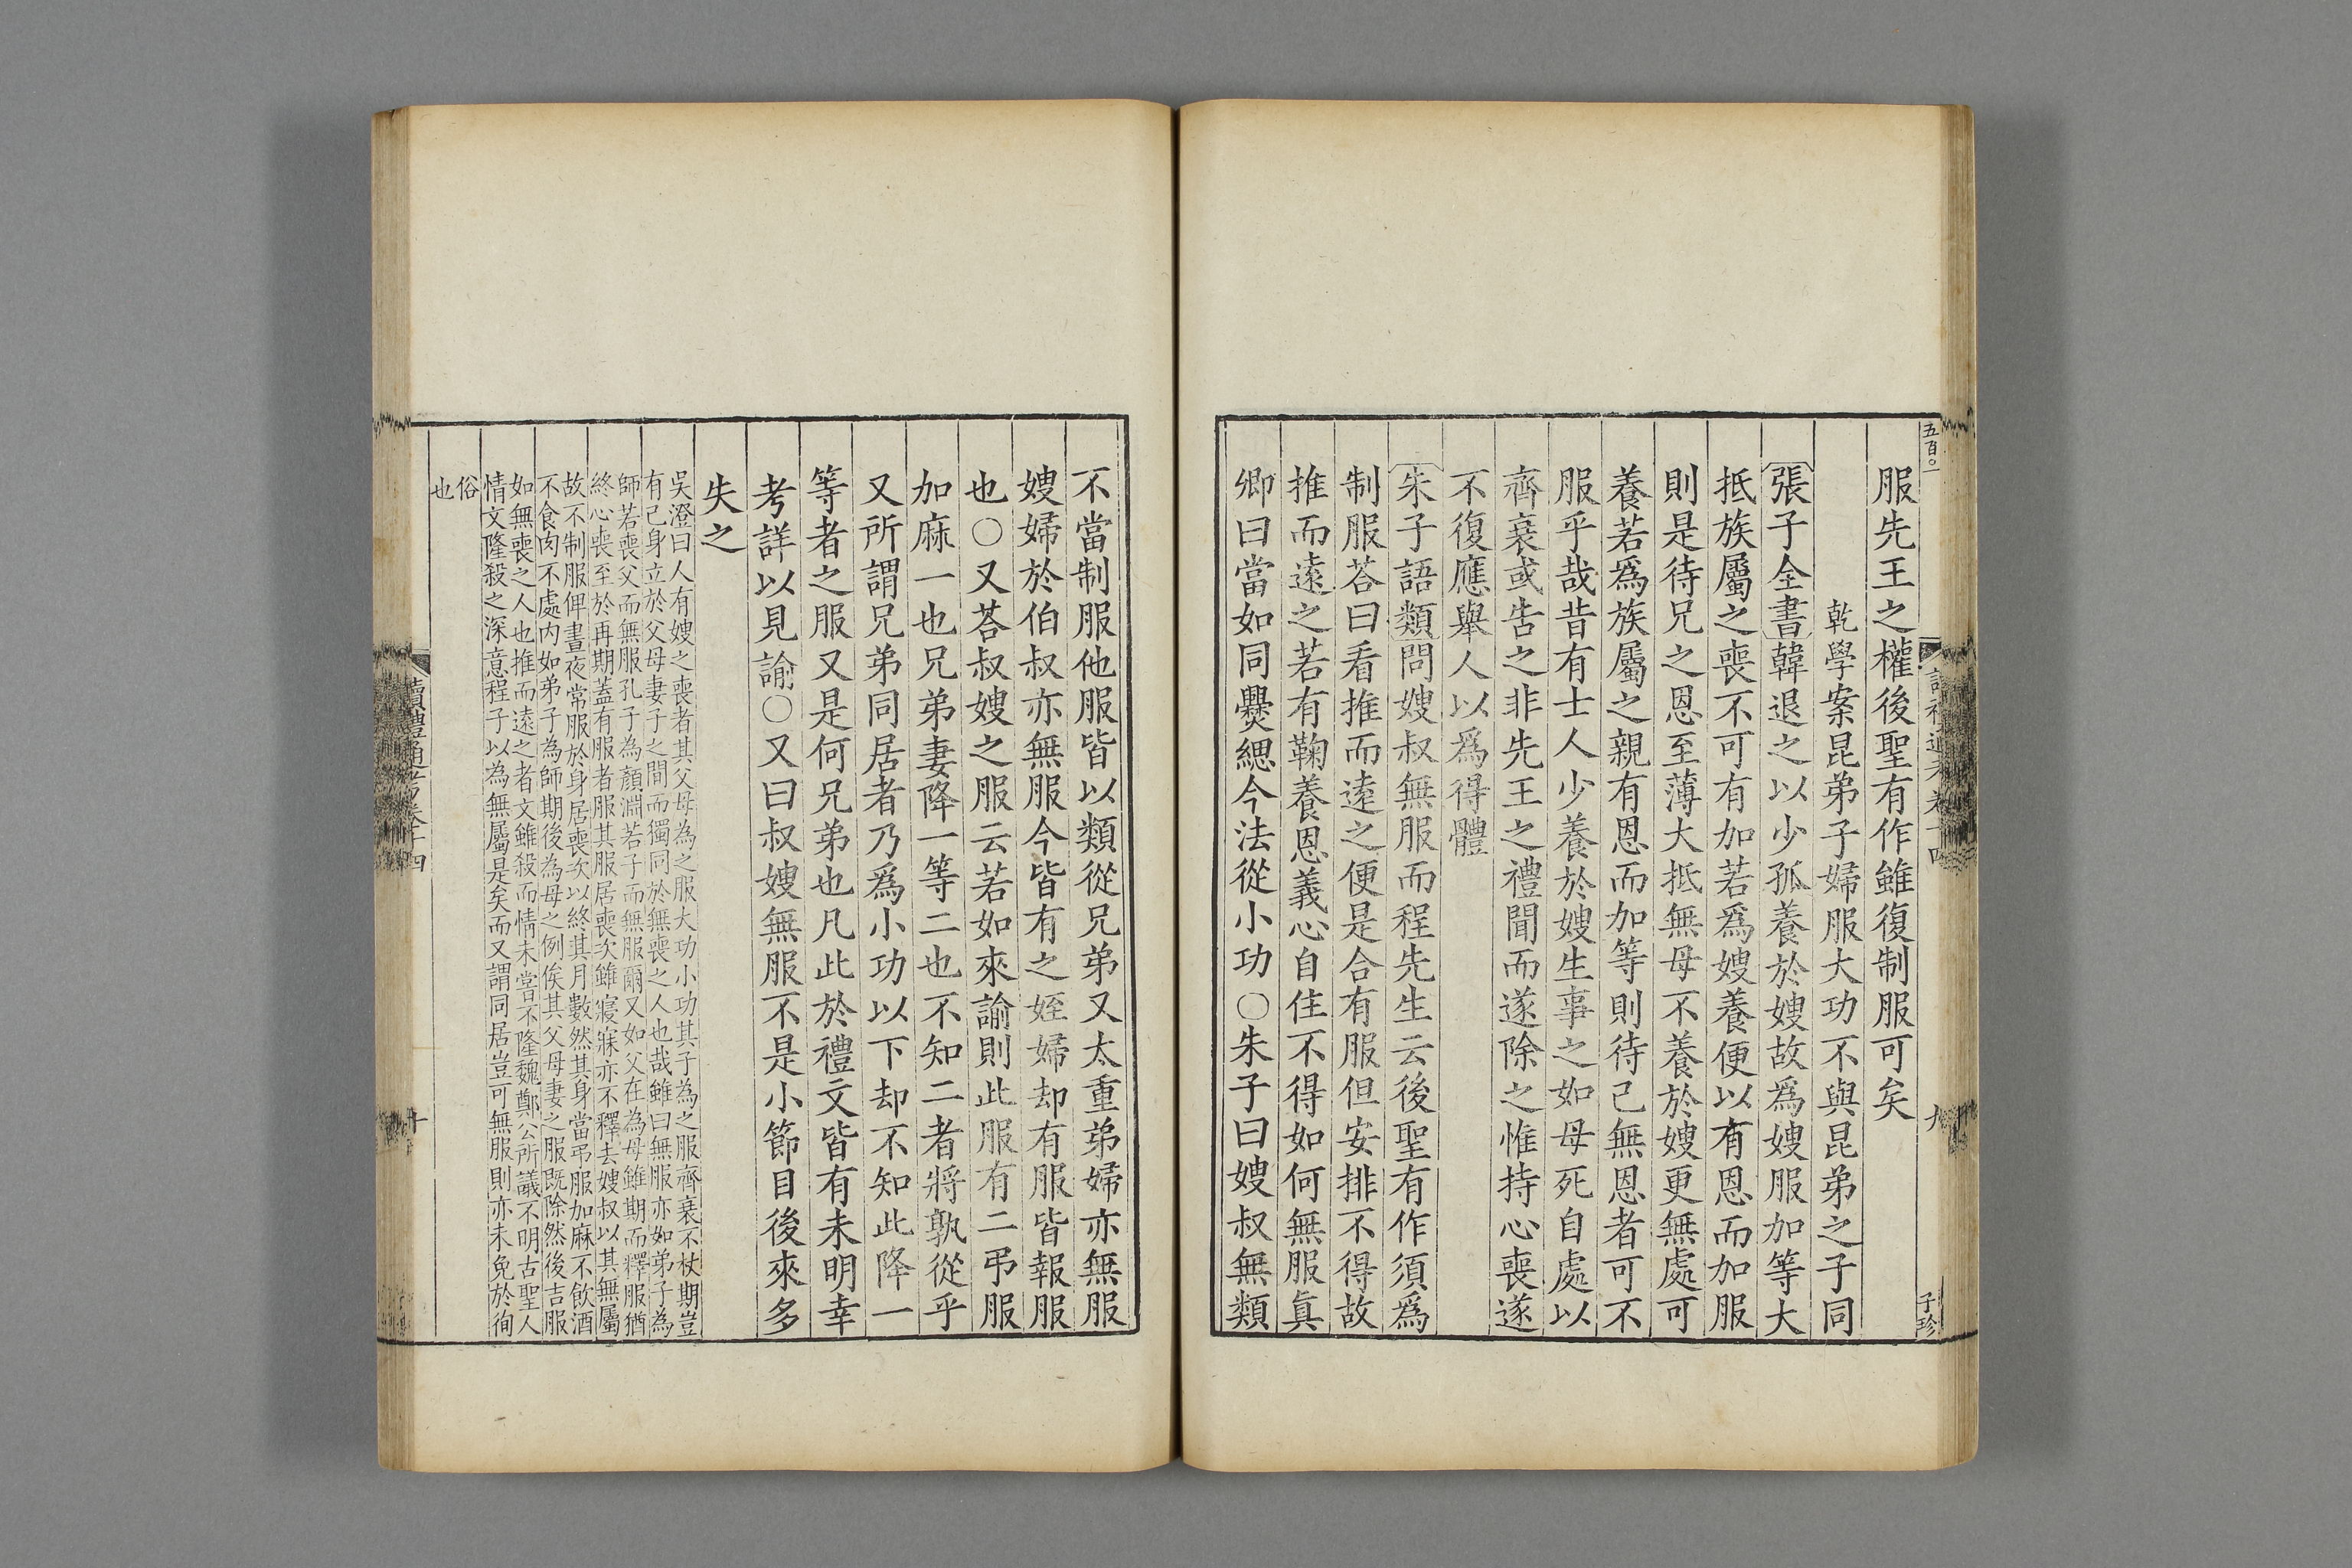 五百〇
讀禮通考卷十四
九
子珍
服先王之權後聖有作雖復制服可矣
乾學案昆弟子婦服大功不與昆弟之子同
張子全書韓退之以少孤養於嫂故爲嫂服加等大
抵族屬之喪不可有加若爲嫂養便以有恩而加服
則是待兄之恩至薄大抵無母不養於嫂更無處可
養若爲族屬之親有恩而加等則待己無恩者可不
服乎哉昔有士人少養於嫂生事之如母死自處以
齊衰或告之非先王之禮聞而遂除之惟持心喪遂
不復應舉人以爲得體
朱子語類問嫂叔無服而程先生云後聖有作須爲
制服荅曰看推而遠之便是合有服但安排不得故
推而遠之若有鞠養恩義心自住不得如何無服眞
卿曰當如同爨緦今法從小功○朱子曰嫂叔無類
不當制服他服皆以類從兄弟又太重弟婦亦無服
嫂婦於伯叔亦無服今皆有之姪婦却有服皆報服
也○又荅叔嫂之服云若如來諭則此服有二弔服
加麻一也兄弟妻降一等二也不知二者將孰從乎
又所謂兄弟同居者乃爲小功以下却不知此降一
等者之服又是何兄弟也凡此於禮文皆有未明幸
考詳以見諭○又曰叔嫂無服不是小節目後來多
失之
吳澄曰人有嫂之喪者其父母為之服大功小功其子為之服齊衰不杖期豈
有己身立於父母妻子之間而獨同於無喪之人也哉雖曰無服亦如弟子為
師若喪父而無服孔子為顏淵若子而無服爾又如父在為母雖期而釋服猶
終心喪至於再期蓋有服者服其服居喪次雖寢寐亦不釋去嫂叔以其無屬
故不制服俾晝夜常服於身居喪次以終其月數然其身當弔服加麻不飲酒
不食肉不處内如弟子為師期後為母之例俟其父母妻之服既除然後吉服
如無喪之人也推而遠之者文雖殺而情未嘗不隆魏鄭公所議不明古聖人
情文隆殺之深意程子以為無屬是矣而又謂同居豈可無服則亦未免於徇
俗
也
讀禮通考卷十四
十